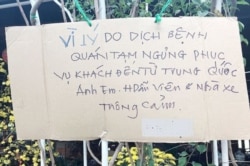 VÌ LÝ DO DỊCH BỆNH
QUÁN TẠM NGỪNG PHỤC
VỤ KHÁCH ĐẾN TỪ TRUNG QUỐC
Anh Em. HDẫn Viên & Nhà XE
Thông CẢM.